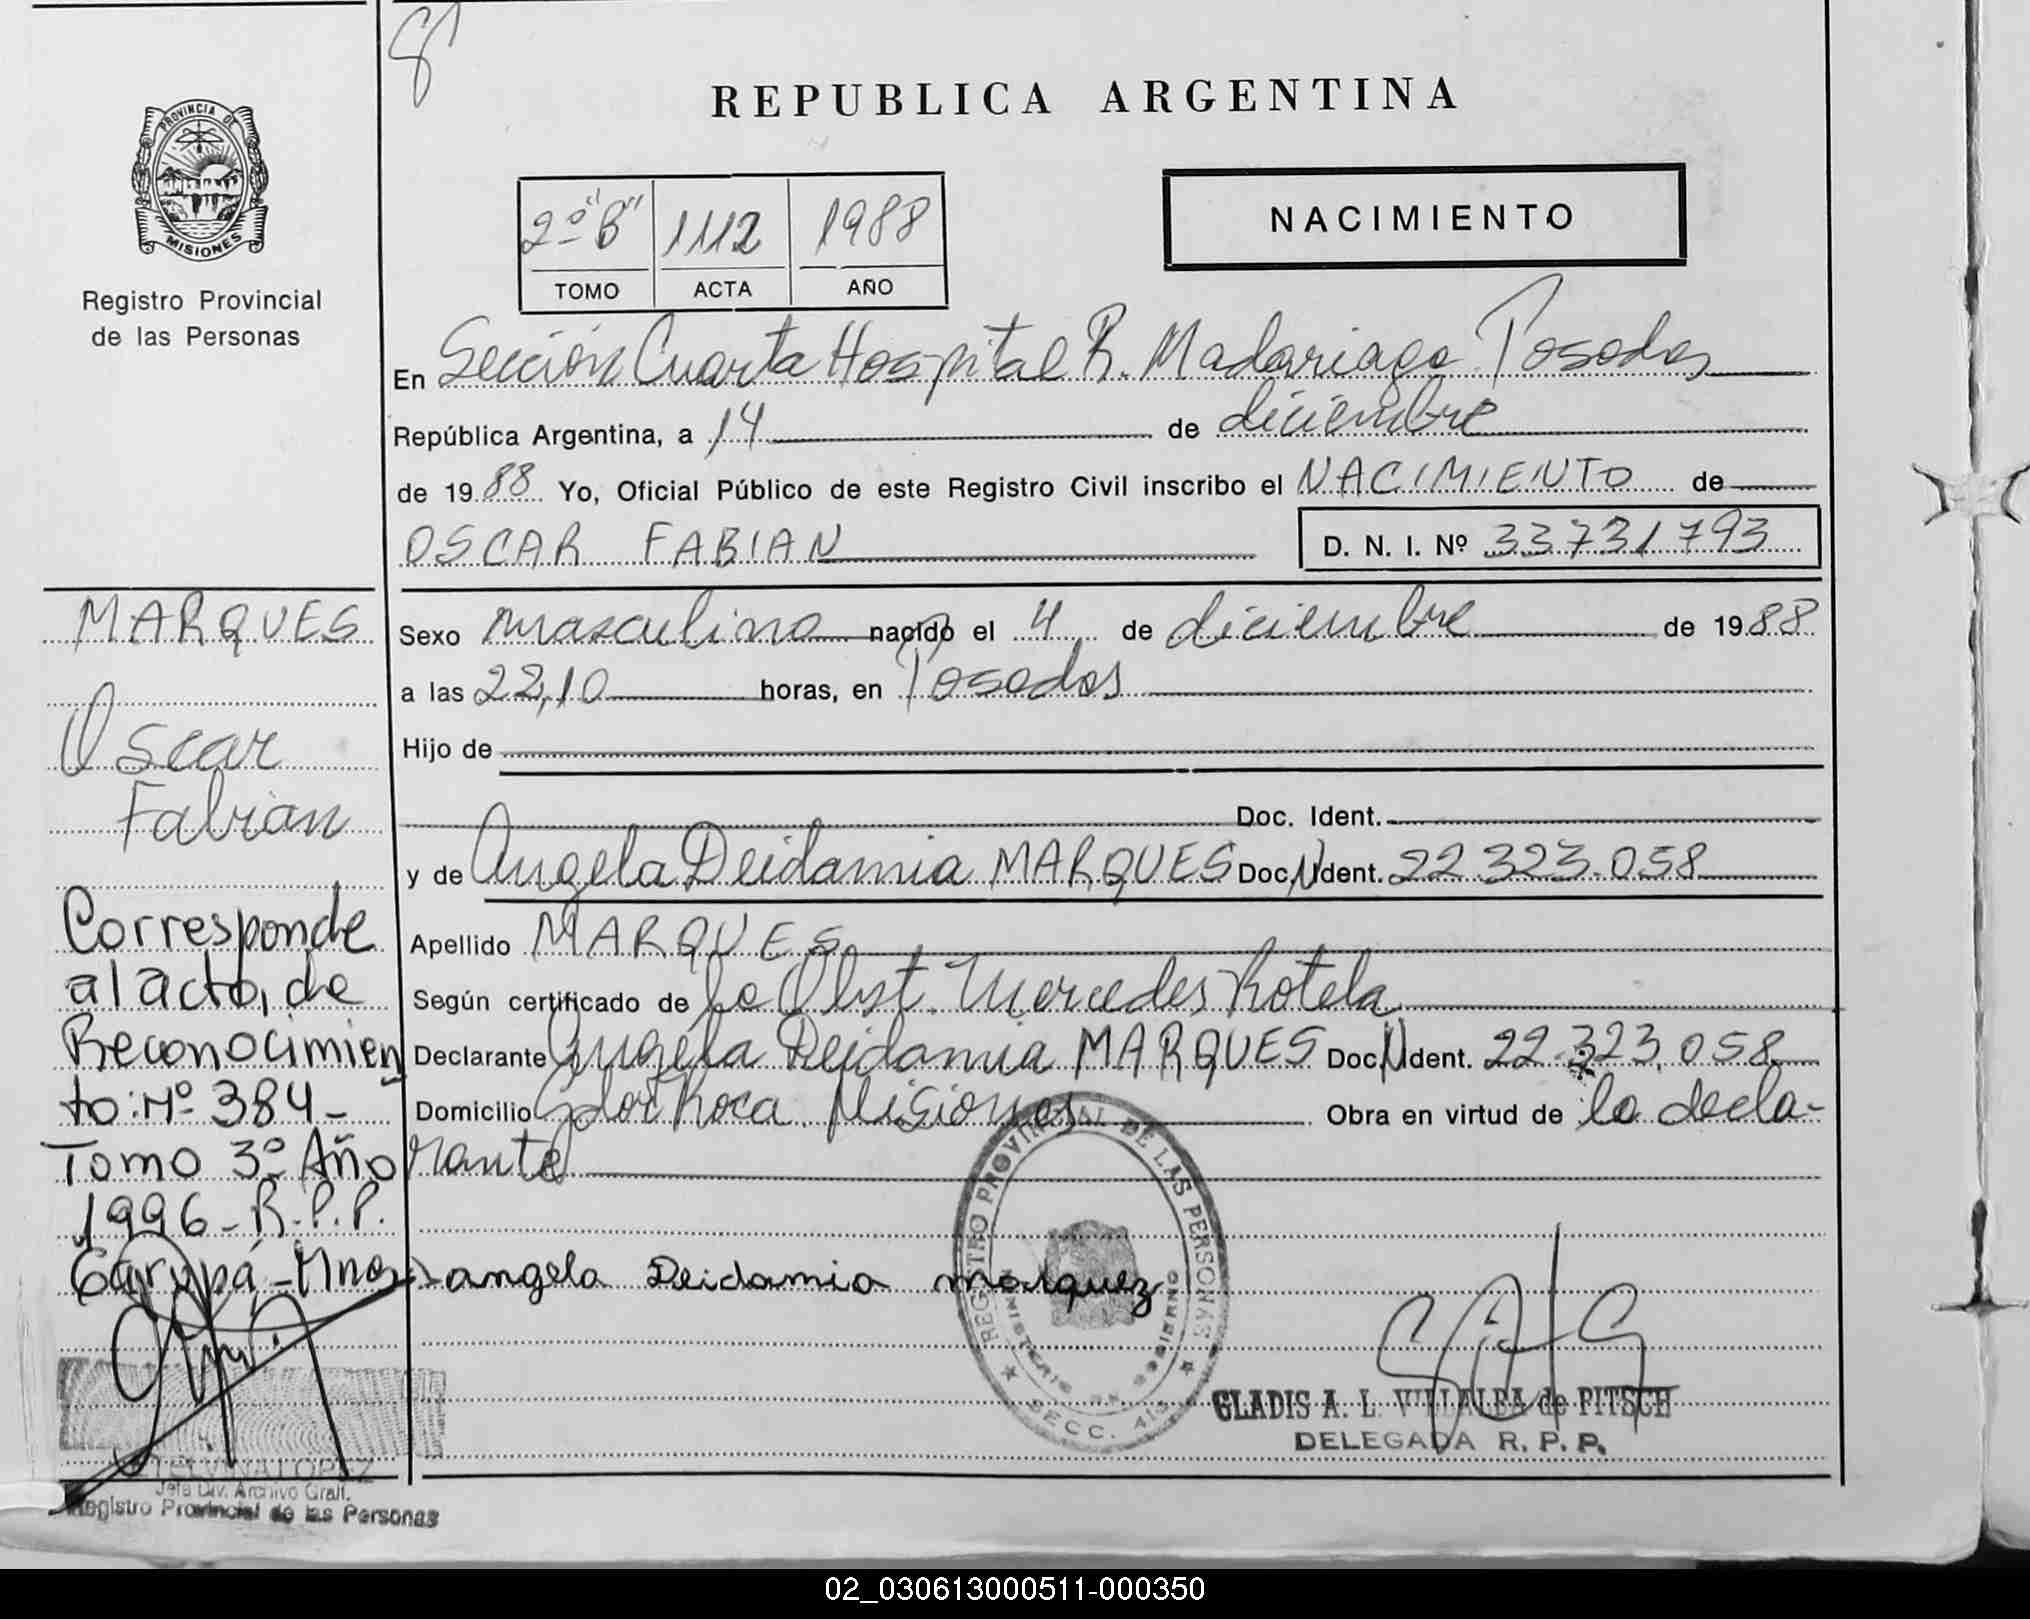 PROVINCIA DE
MISIONES
Registro Provincial
de las Personas
REPUBLICA ARGENTINA
2º "B" 1112 1988
TOMO ACTA AÑO
NACIMIENTO
En Sección Cuarta Hospital R. Madariaga Posadas
República Argentina, a 14 de diciembre
de 1988 Yo, Oficial Público de este Registro Civil inscribo el NACIMIENTO de
OSCAR FABIAN D. N. I. Nº 33731793
Sexo masculino nacido el 4 de diciembre de 1988
a las 22,10 horas, en Posadas
Hijo de
Doc. Ident.
y de Angela Deidamia MARQUES Doc. N Ident. 22.323.058
Apellido MARQUES
Según certificado de la Obst. Mercedes Rotela
Declarante Angela Deidamia MARQUES Doc. N Ident. 22.323.058
Domicilio Gdor Roca Misiones Obra en virtud de la decla-
rante
angela Deidamia marquez
REGISTRO PROVINCIAL DE LAS PERSONAS
MINISTERIO DE GOBIERNO
SECC. 4ta
GLADIS A. L. VILLALBA de PITSCH
DELEGADA R. P. P.
MARQUES
Oscar
Fabian
Corresponde
al acto, de
Reconocimien
to: Nº 384-
Tomo 3º Año
1996- R.P.P.
Garupá-Mnes-
ETELVINA LOPEZ
Jefa Div. Archivo Gral.
Registro Provincial de las Personas
02_030613000511-000350